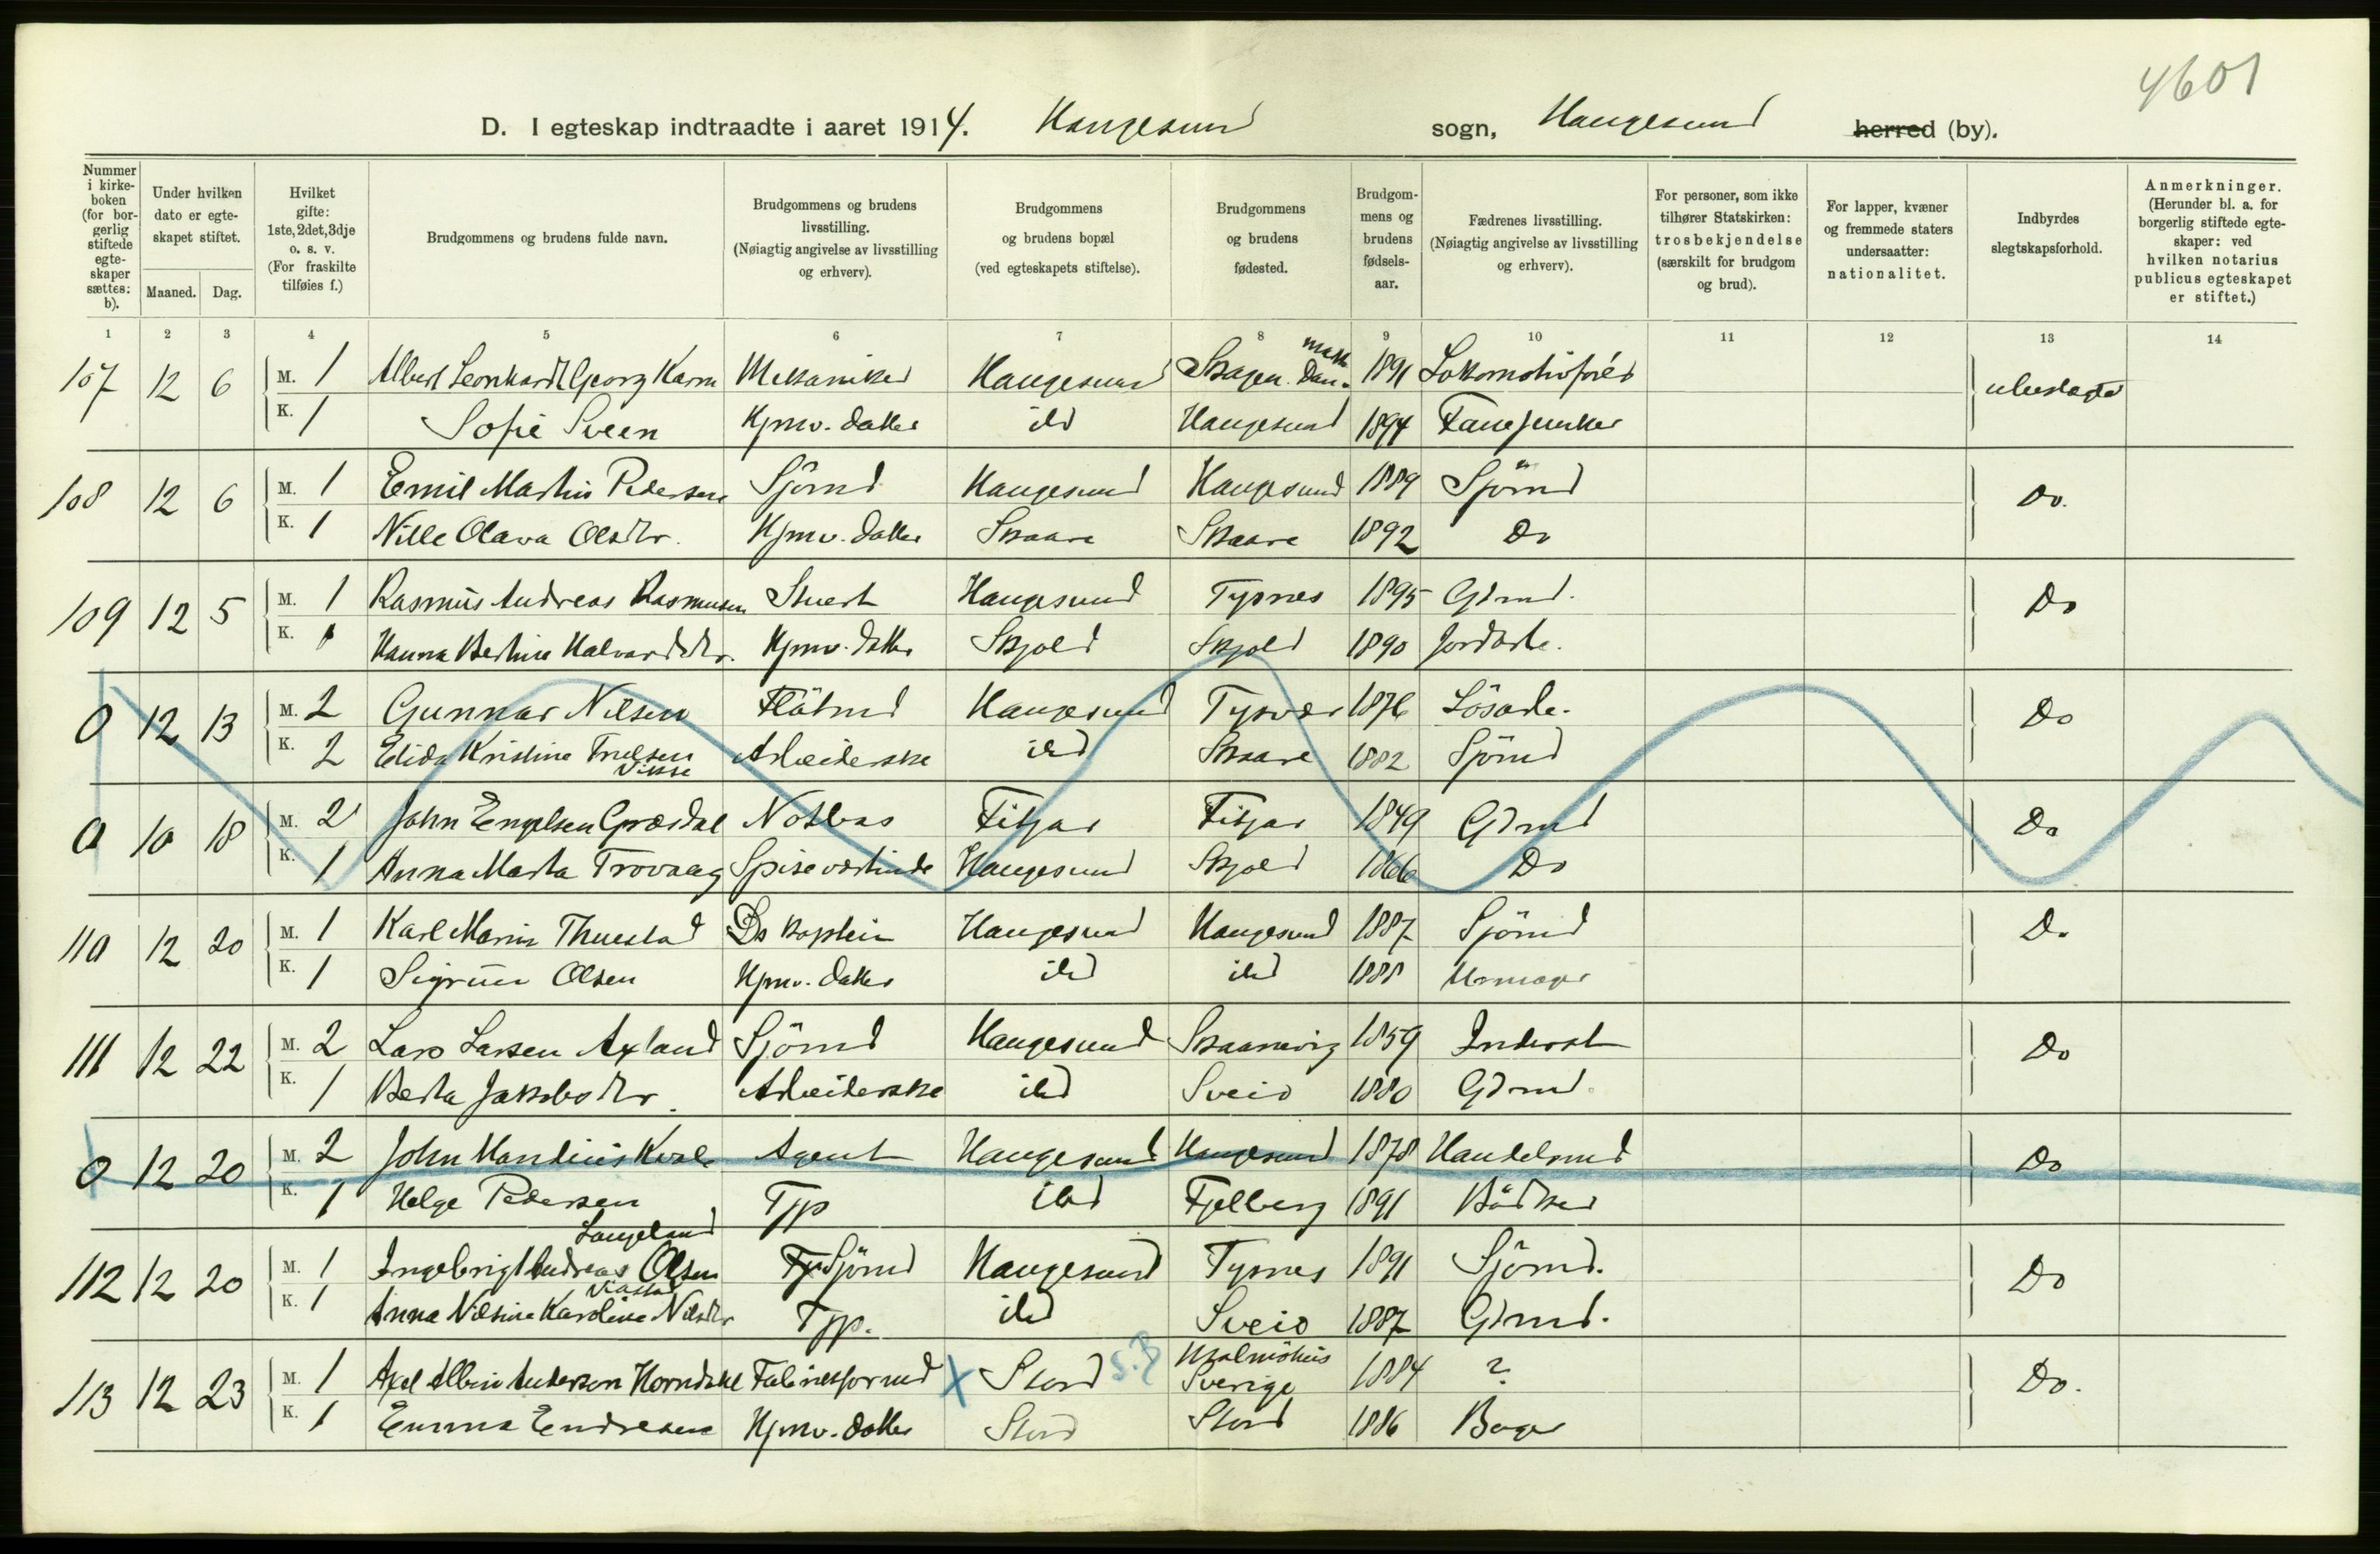 4601
D. I egteskap indtraadte i aaret 1914. Haugesund sogn, Haugesund herred (by).
Nummer i kirke-boken (for bor-gerlig stiftede egte-skaper sættes: b).
Under hvilken dato er egte-skapet stiftet.
Maaned. Dag.
Hvilket gifte: 1ste, 2det, 3dje o. s. v. (For fraskilte tilføies f.)
Brudgommens og brudens fulde navn.
Brudgommens og brudens livsstilling. (Nøiagtig angivelse av livsstilling og erhverv).
Brudgommens og brudens bopæl (ved egteskapets stiftelse).
Brudgommens og brudens fødested.
Brudgom-mens og brudens fødsels-aar.
Fædrenes livsstilling. (Nøiagtig angivelse av livsstilling og erhverv).
For personer, som ikke tilhører Statskirken: trosbekjendelse (særskilt for brudgom og brud).
For lapper, kvæner og fremmede staters undersaatter: nationalitet.
Indbyrdes slegtskapsforhold.
Anmerkninger. (Herunder bl. a. for borgerlig stiftede egte-skaper: ved hvilken notarius publicus egteskapet er stiftet.)
1 2 3 4 5 6 7 8 9 10 11 12 13 14
107 12 6 M. 1 Albert Leonhardt Georg Karm Mekaniker Haugesund Skagen Danmark 1891 Lokomotivförer ubeslagtet
K. 1 Sofie Sveen Hjmv. datter ibd Haugesund 1894 Fanejunker
108 12 6 M. 1 Emil Martin Pedersen Sjömd Haugesund Haugesund 1889 Sjömd Do.
K. 1 Nille Olava Olsdtr. Hjmv. datter Skaare Skaare 1892 Do
109 12 5 M. 1 Rasmus Andreas Rasmussen Stuert Haugesund Tysnes 1895 Gdmd. Do
K. 1 Hanna Bertine Halvardsdtr. Hjmv. datter Skjold Skjold 1890 Jordarb.
0 12 13 M. 2 Gunnar Nilsen Flötmd Haugesund Tysvær 1876 Lösarb. Do
K. 2 Elida Kristine Truelsen Vikse Arbeiderske ibd Skaare 1882 Sjömd
0 10 18 M. 2 John Engelsen Grærdal Notbas Fitjar Fitjar 1849 Gdmd Do
K. 1 Anna Marta Trovaag Spiseværtinde Haugesund Skjold 1866 Do
110 12 20 M. 1 Karl Marin Thuestad Ds kaptein Haugesund Haugesund 1887 Sjömd Do
K. 1 Sigrun Olsen Hjmv. datter ibd ibd 1888 Urmager
111 12 22 M. 2 Lars Larsen Axland Sjömd Haugesund Skaanevig 1859 Inderst Do
K. 1 Berta Jakobsdtr. Arbeiderske ibd Sveio 1880 Gdmd.
0 12 20 M. 2 John Mandius Kvale Agent Haugesund Haugesund 1878 Handelsmd Do
K. 1 Helge Pedersen Tjp ibd Fjelberg 1891 Bödker
Langeland
112 12 20 M. 1 Ingebrigt Andreas Olsen Sjömd Haugesund Tysnes 1891 Sjömd. Do
K. 1 Anna Nilsine Karoline Nilsdtr Tjp. ibd Sveio 1887 Gdmd.
113 12 23 M. 1 Axel Albin Andersen Horndahl x Stord S.B Malmöhus Sverige 1884 ? Do.
K. 1 Emma Endresen Hjmv. datter Stord Stord 1886 Bager